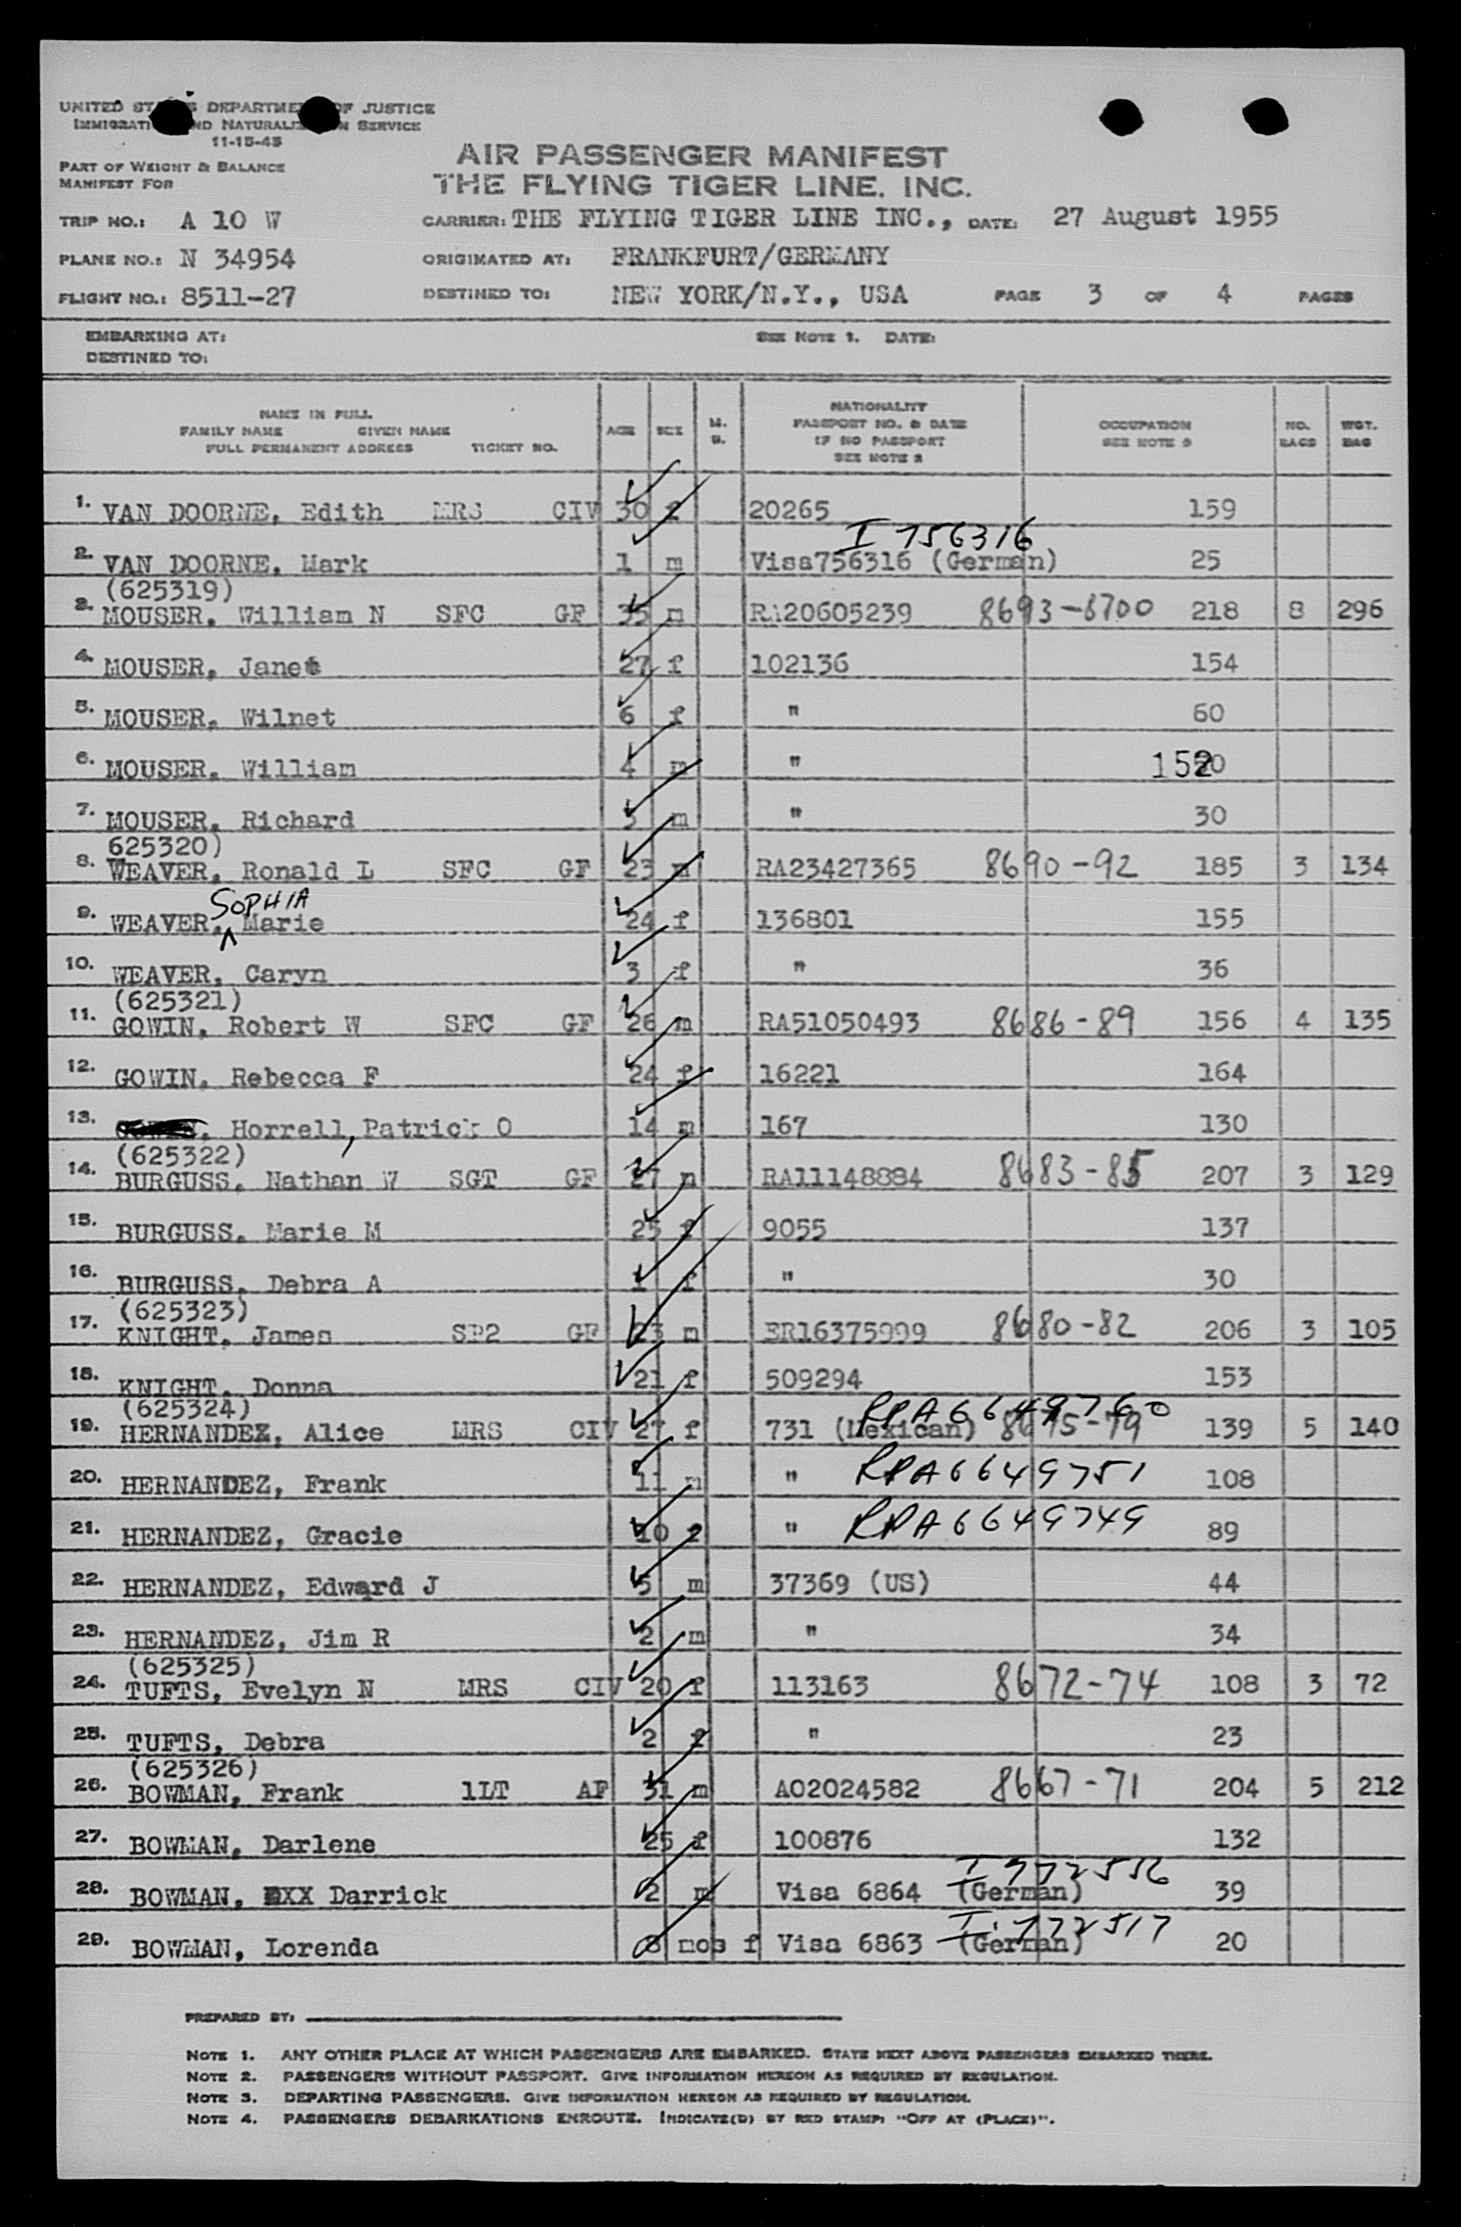 UNITED STATES DEPARTMENT OF JUSTICE
IMMIGRATION AND NATURALIZATION SERVICE
11-15-45
PART OF WEIGHT & BALANCE
MANIFEST FOR
AIR PASSENGER MANIFEST
THE FLYING TIGER LINE. INC.
TRIP NO.: A 10 W CARRIER: THE FLYING TIGER LINE INC., DATE: 27 August 1955
PLANE NO.: N 34954 ORIGINATED AT: FRANKFURT/GERMANY
FLIGHT NO.: 8511-27 DESTINED TO: NEW YORK/N.Y., USA PAGE 3 OF 4 PAGES
EMBARKING AT: SEE NOTE 1. DATE:
DESTINED TO:
NAME IN FULL
FAMILY NAME GIVEN NAME
FULL PERMANENT ADDRESS TICKET NO.
AGE SEX
NATIONALITY
PASSPORT NO. & DATE
IF NO PASSPORT
SEE NOTE 2
OCCUPATION
SEE NOTE 3
NO. BAGS
WGT. BAG
1. VAN DOORNE, Edith MRS CIV 30 f 20265 159
I 756316
2. VAN DOORNE, Mark 1 m Visa756316 (German) 25
(625319)
3. MOUSER, William N SFC GF 35 m RA20605239 8693-8700 218 8 296
4. MOUSER, Janet 27 f 102136 154
5. MOUSER, Wilnet 6 f " 60
6. MOUSER, William 4 m " 152
7. MOUSER, Richard 3 m " 30
625320)
8. WEAVER, Ronald L SFC GF 23 m RA23427365 8690-92 185 3 134
SOPHIA
9. WEAVER, Marie 24 f 136801 155
10. WEAVER, Caryn 3 f " 36
(625321)
11. GOWIN, Robert W SFC GF 26 m RA51050493 8686-89 156 4 135
12. GOWIN, Rebecca F 24 f 16221 164
13. Horrell, Patrick O 14 m 167 130
(625322)
14. BURGUSS, Nathan W SGT GF 27 m RA11148884 8683-85 207 3 129
15. BURGUSS, Marie M 25 f 9055 137
16. BURGUSS, Debra A 1 f " 30
(625323)
17. KNIGHT, James SP2 GF 23 m ER16375999 8680-82 206 3 105
18. KNIGHT, Donna 21 f 509294 153
(625324) RPA6649760
19. HERNANDEZ, Alice MRS CIV 27 f 731 (Mexican) 8675-79 139 5 140
20. HERNANDEZ, Frank 11 m " RPA6649751 108
21. HERNANDEZ, Gracie 10 f " RPA6649749 89
22. HERNANDEZ, Edward J 5 m 37369 (US) 44
23. HERNANDEZ, Jim R 2 m " 34
(625325)
24. TUFTS, Evelyn N MRS CIV 20 f 113163 8672-74 108 3 72
25. TUFTS, Debra 2 f " 23
(625326)
26. BOWMAN, Frank 1LT AF 31 m AO2024582 8667-71 204 5 212
27. BOWMAN, Darlene 25 f 100876 132
28. BOWMAN, Darrick 2 m Visa 6864 (German) 39
29. BOWMAN, Lorenda 8 mos f Visa 6863 (German) I-772517 20
PREPARED BY:
NOTE 1. ANY OTHER PLACE AT WHICH PASSENGERS ARE EMBARKED. STATE NEXT ABOVE PASSENGERS EMBARKED THERE.
NOTE 2. PASSENGERS WITHOUT PASSPORT. GIVE INFORMATION HEREON AS REQUIRED BY REGULATION.
NOTE 3. DEPARTING PASSENGERS. GIVE INFORMATION HEREON AS REQUIRED BY REGULATION.
NOTE 4. PASSENGERS DEBARKATIONS ENROUTE. INDICATE(D) BY RED STAMP: "OFF AT (PLACE)".